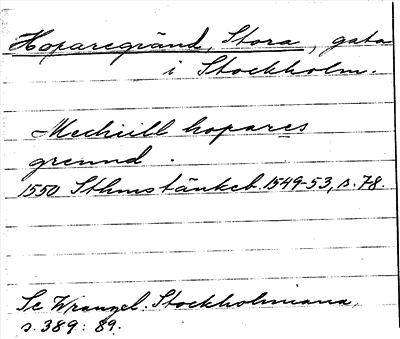 Hoparegränd, Stora, gata
i Stockholm.
Mechiill hopares
grennd.
1550 Sthmstänkeb. 1549-53, s. 78.
Se Wrangel. Stockholmiana,
s. 389: 89.